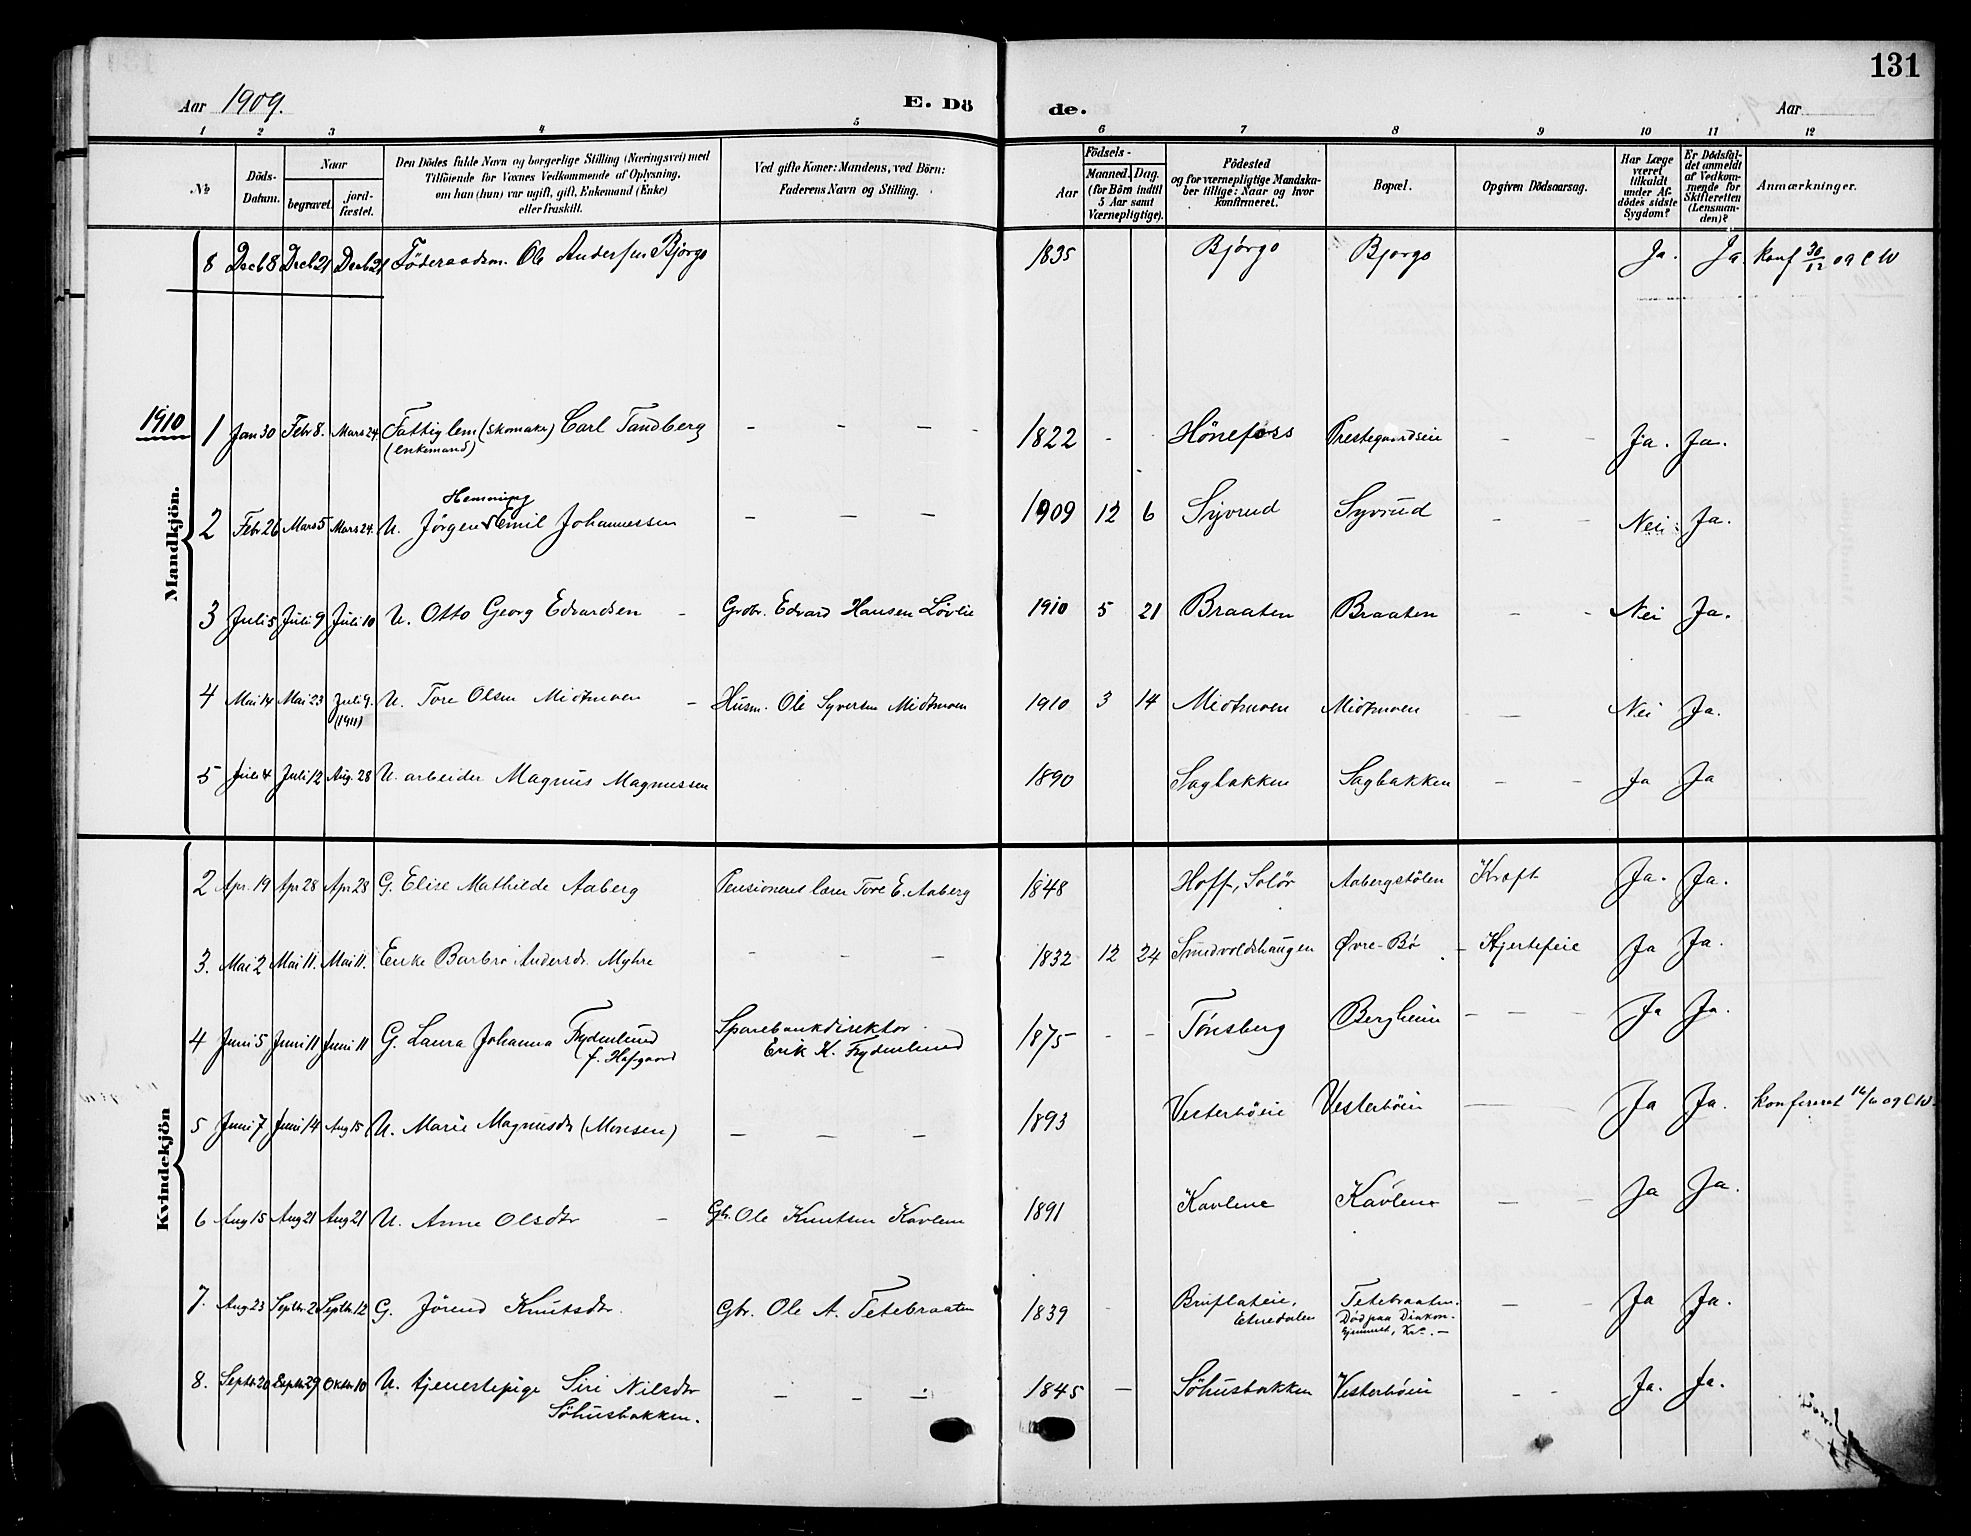 131
Aar 1909. E. Dö de. Aar
1 2 3 4 5 6 7 8 9 10 11 12
№
Döds-
Datum.
Naar
begravet.
jord-
fæstet.
Den Dödes fulde Navn og borgerlige Stilling (Næringsvei) med
Tilföiende for Voxnes Vedkommende af Oplysning,
om han (hun) var ugift, gift, Enkemand (Enke)
eller fraskilt.
Ved gifte Koner: Mandens, ved Börn:
Faderens Navn og Stilling.
Födsels-
Aar
Maaned. Dag.
(for Börn indtil
5 Aar samt
Værnepligtige).
Födested
og for værnepligtige Mandska-
ber tillige: Naar og hvor
konfirmeret.
Bopæl.
Opgiven Dödsaarsag.
Har Læge
været
tilkaldt
under Af-
dödes sidste
Sygdom?
Er Dödsfal-
det anmeldt
af Vedkom-
mende for
Skifteretten
(Lensman-
den)?
Anmærkninger.
8 Decb 8 Decb 21 Decb 21 Föderaadsm. Ole Andersen Bjørgo 1835 Bjørgo Bjorgo Ja. Ja. Konf 30/12 09 C W
1910
Mandkjön.
1 Jan 30 Febr 8. Mars 24. Fattiglem (skomaker) Carl Tandberg - - - - 1822 - - Hönefoss Prestegaardseie - - Ja. Ja.
(enkemand)
Hemming
2 Febr 26 Mars 5 Mars 24. U. Jørgen Emil Johannessen - - - 1909 12 6 Syvrud Syvrud - - Nei Ja.
3 Juli 5 Juli 9 Juli 10 U. Otto Georg Edvardsen - Grbr. Edvard Hansen Løvlie 1910 5 21 Braaten Braaten - - Nei Ja.
4 Mai 14 Mai 23 Juli 9. U. Tore Olsen Midtmoen - Husm. Ole Syversen Midtmoen 1910 3 14 Midtmoen Midtmoen - Nei Ja.
(1911)
5 Juli 4 Juli 12 Aug. 28 U. arbeider Magnus Magnussen 1890 Sagbakken Sagbakken - - Ja Ja
Kvindekjön
2 Apr. 19 Apr 28 Apr 28 G. Elise Mathilde Aaberg Pensioneret lærer Tore E. Aaberg 1848 Hoff, Solör Aabergstölen Kræft Ja. Ja.
3. Mai 2 Mai 11. Mai 11. Enke Barbro Andersdr. Myhre - - - 1832 12 24 Smedvoldshaugen Øvre-Bø - Hjertefeil Ja Ja.
4 Juni 5 Juni 11 Juni 11 G. Laura Johanna Frydenlund Sparebankdirektør 1875 - - Tönsberg Bergheim - - - Ja Ja.
f. Hofgaard Erik K. Frydenlund
5 Juni 7 Juni 14 Aug 15 U. Marie Magnusdr (Monsen) - - - 1893 Vesterböeie Vesterböeie - - Ja Ja. Konfereret 16/6 09 C W.
6 Aug 15 Aug 21 Aug 21 U. Anne Olsdtr - Gbr. Ole Knutsen Kavlene 1891 Kavlene Kavlene - - Ja Ja.
7. Aug 23 Septbr. 2 Septbr. 12 G. Jörend Knutsdtr. Gbr. Ole A. Tetebraaten 1839 - Bruflateie, Tetebraaten. - - Ja Ja.
Etnedalen Död paa Diakon-
hjemmet, Kra. -
8. Septbr. 20 Septbr 29 Oktbr 10 U. tjenestepige Siri Nilsdtr - - - 1845 - Söhusbakken Vesterböeie - - Ja. Ja.
Söhusbakken.